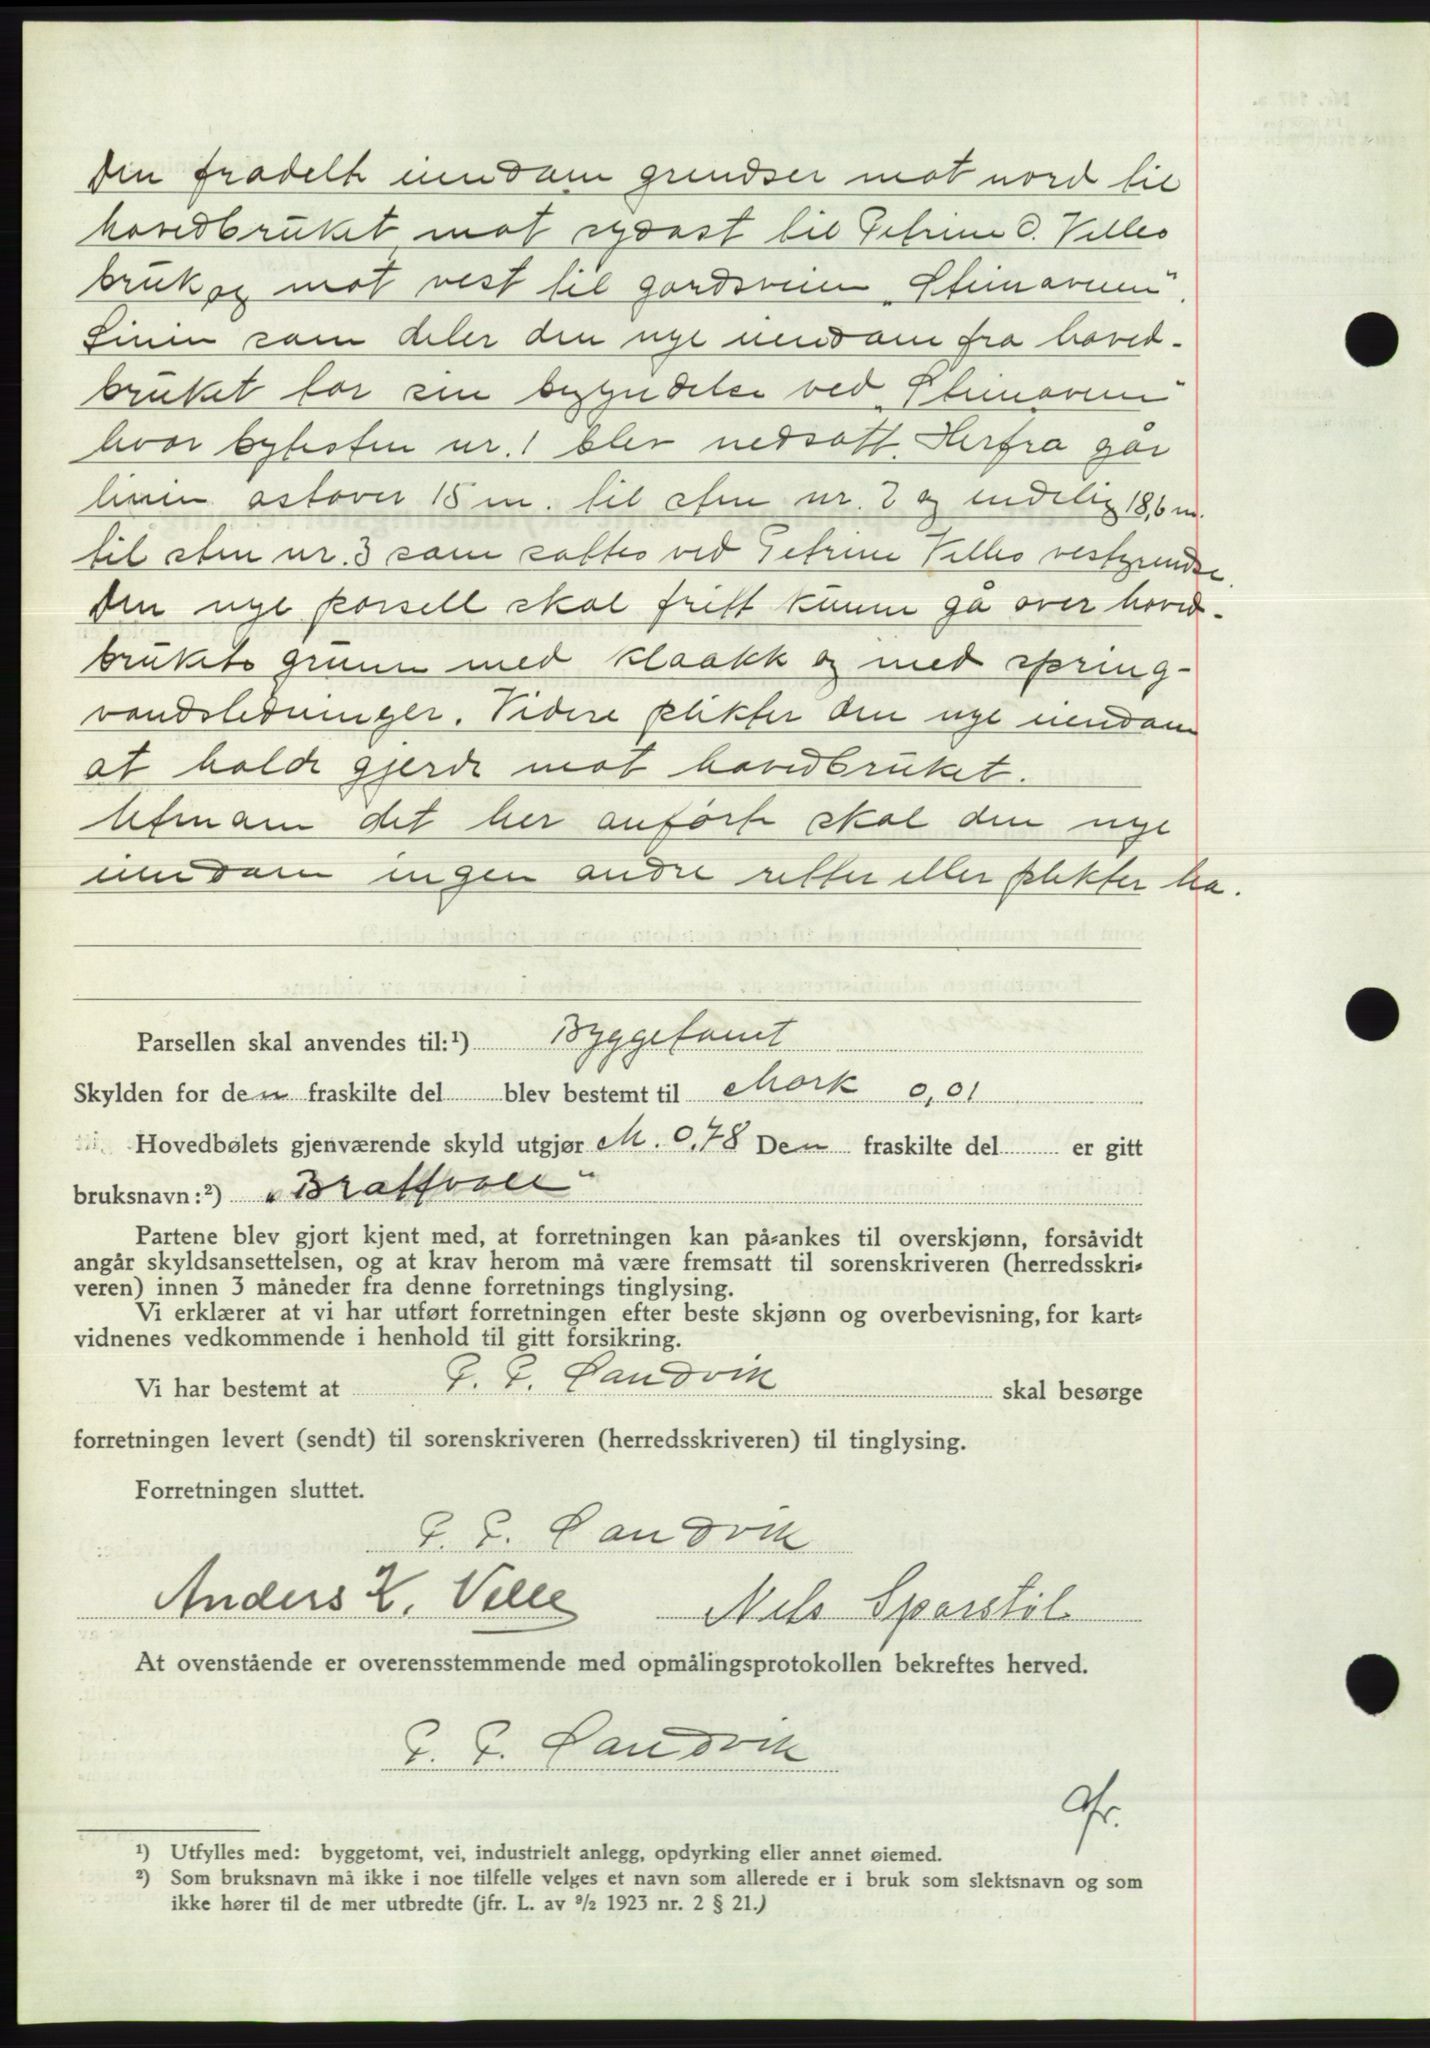 Den fradelte eiendom grendser mot nord til
hovedbruket, mot sydost til Petrine O. Velles
bruk og mot vest til gardsveien „Steinaveien".
Linien som deler den nye eiendom fra hoved-
bruket tar sin begyndelse ved „Steinaveien"
hvor bytesten nr. 1 blev nedsatt. Herfra går
linien ostover 15 m. til sten nr. 2 og endelig 18,6 m.
til sten nr. 3 som sattes ved Petrine Velles vestgrendse.
Den nye parsell skal fritt kunne gå over hoved-
brukets grunn med kloakk og med spring-
vandsledninger. Videre plikter den nye eiendom
at holde gjerde mot hovedbruket.
Utenom det her anførte skal den nye
eiendom ingen andre retter eller plikter ha.
Parsellen skal anvendes til:¹) Byggetomt
Skylden for den fraskilte del blev bestemt til Mark 0,01
Hovedbølets gjenværende skyld utgjør M. 0,78 Den fraskilte del er gitt
bruksnavn:²) „Brattvoll"
Partene blev gjort kjent med, at forretningen kan på-ankes til overskjønn, forsåvidt
angår skyldsansettelsen, og at krav herom må være fremsatt til sorenskriveren (herredsskri-
veren) innen 3 måneder fra denne forretnings tinglysing.
Vi erklærer at vi har utført forretningen efter beste skjønn og overbevisning, for kart-
vidnenes vedkommende i henhold til gitt forsikring.
Vi har bestemt at P. P. Sandvik skal besørge
forretningen levert (sendt) til sorenskriveren (herredsskriveren) til tinglysing.
Forretningen sluttet.
P. P. Sandvik
Anders K. Velle Nels Sporstøl
At ovenstående er overensstemmende med opmålingsprotokollen bekreftes herved.
P. P. Sandvik
¹) Utfylles med: byggetomt, vei, industrielt anlegg, opdyrking eller annet øiemed.
²) Som bruksnavn må ikke i noe tilfelle velges et navn som allerede er i bruk som slektsnavn og som
ikke hører til de mer utbredte (jfr. L. av ⁹/₂ 1923 nr. 2 § 21.)